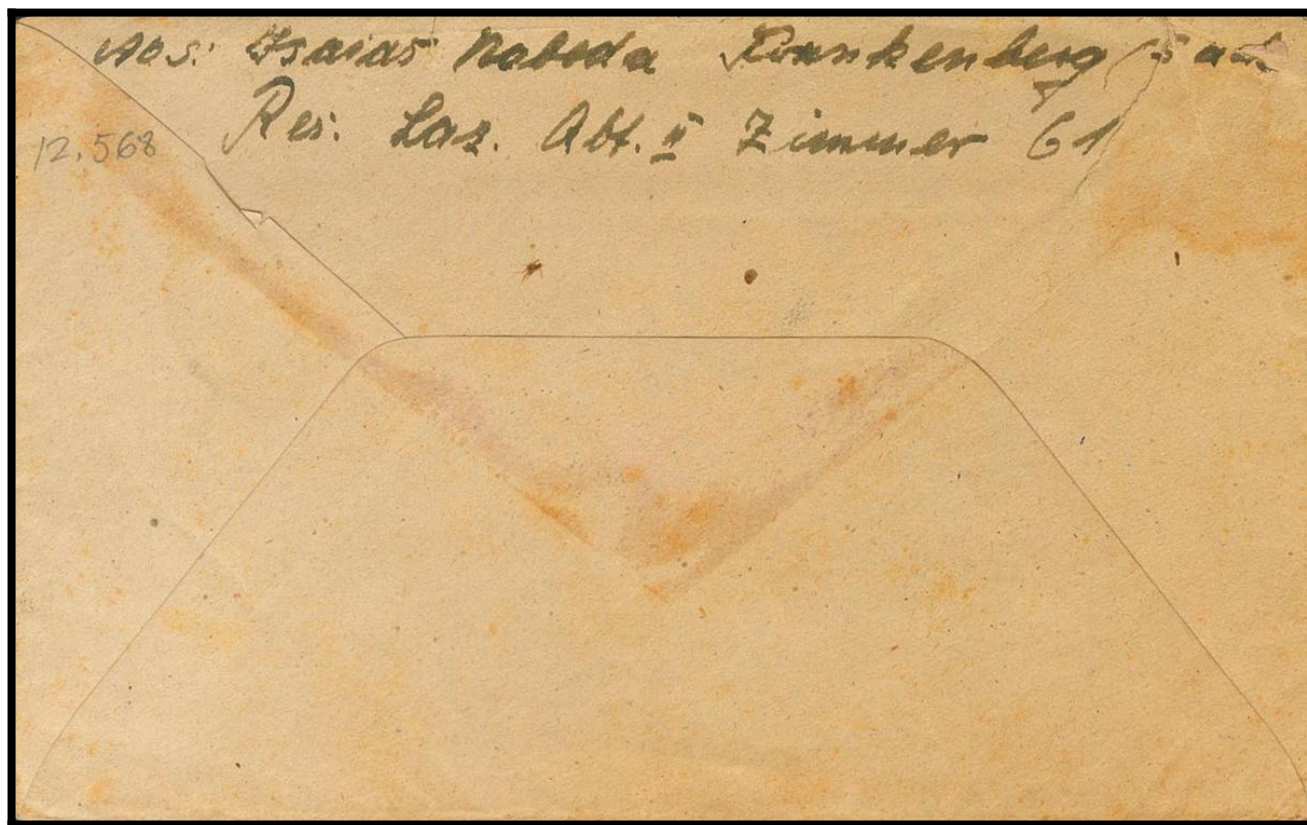 Abs: Isaias Nabeda Frankenberg / Sa
Res. Laz. Abt. II Zimmer 61
12.568